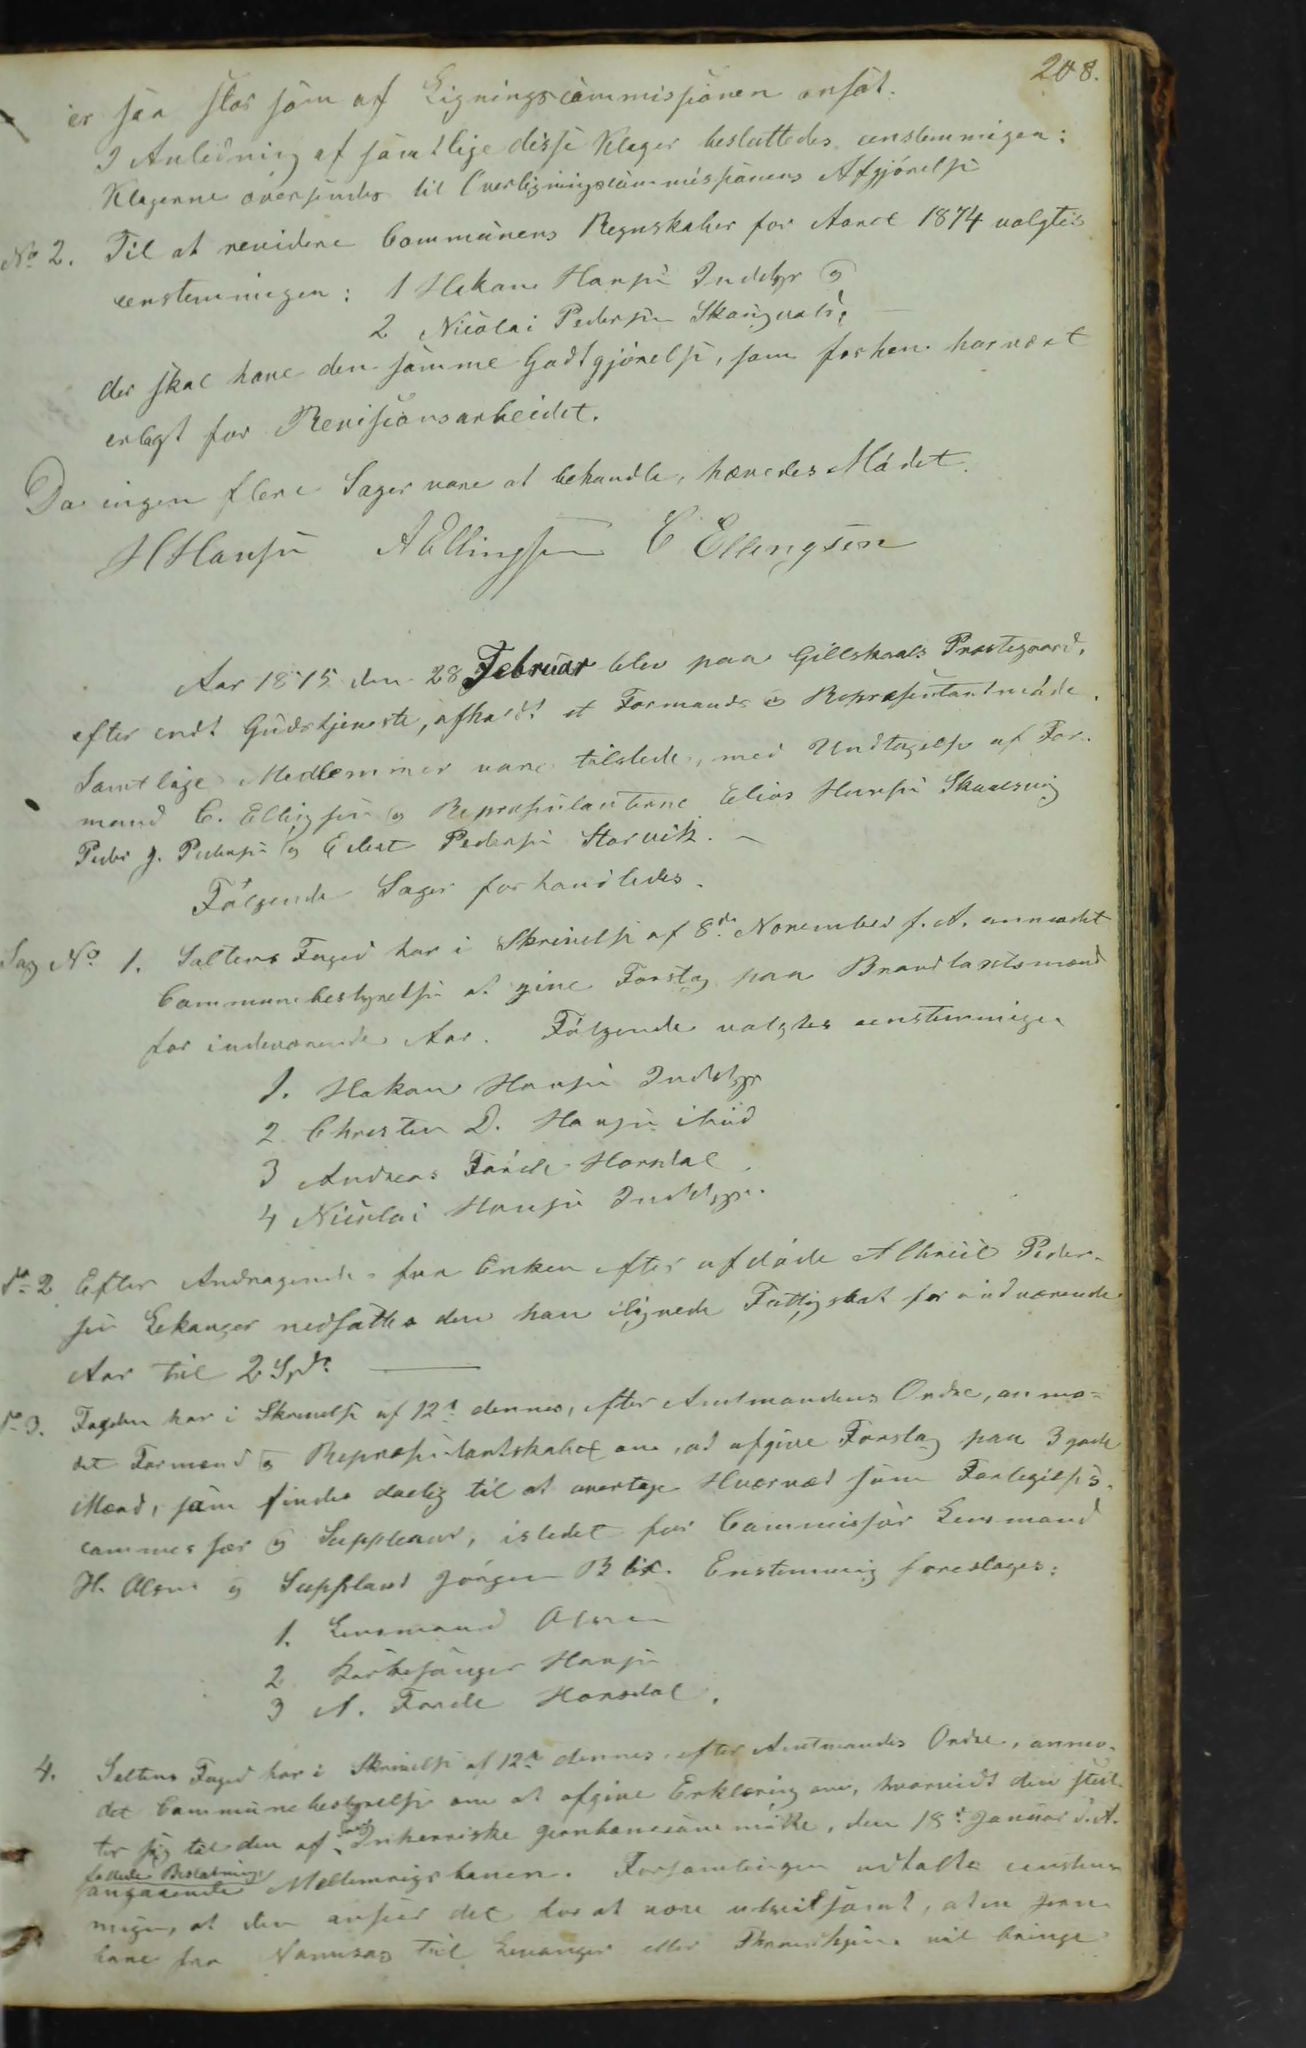 208.
er saa stor som af Ligningscommissionen ansat.
I Anledning af samtlige disse Klager besluttedes eenstemmigen:
Klagerne oversendes til Overligningscommissionens Afgjørelse
No 2. Til at revidere Communens Regnskaber for Aaret 1874 valgtes
eenstemmigen: 1 Hakan Hansen Inddyr og
2 Nicolai Pedersen
der skal have den samme Godtgjørelse, som forhen har vært
erlagt for Revisionsarbeidet.
Da ingen flere Sager vare at behandle, hævedes Mødet.
H Hansen A Ellingsen C Ellingsen
Aar 1875 den 28 Februar blev paa Gillskaals Præstegaard,
efter endt Gudstjeneste, afholdt et Formands og Repræsentantmøde.
Samtlige Medlemmer vare tilstede, med Undtagelse af For-
mand C. Ellingsen og Repræsentanterne Elias Hansen
Peder J. Pedersen og Edert Pedersen Storvik. -
Følgende Sager forhandledes.
Sag No 1. Saltens Foged har i Skrivelse af 8de November f. A. anmodet
Communebestyrelsen at give Forslag paa Brandtaxtsmænd
for indeværende Aar. Følgende valgtes eenstemmigen
1. Hakan Hansen Inddyr
2 Christen D. Hansen
3 Andreas Førde Horsdal
4 Nicolai Hansen Inddyr.
No 2 Efter Andragende fra Enken efter afdøde Peder-
sen Eekanger nedsattes den han ilignede Fattigskat for indværende
Aar til 2 Spd.
No 3. Fogden har i Skrivelse af 12te dennes, efter Amtmandens Ordre, anmo-
det Formænd og Repræsentantskabet om, at afgive Forslag paa 3 gode
Mænd, som findes duelig til at overtage Hvervet som Forligelses-
commissær og Suppleant, istedet for Commissær Lensmand
H. Olsen og Suppleant Jørgen Enstemmig foreslages:
1. Lensmand Olsen
2 Kirkesanger Hansen
3 A. Førde Horsdal.
4. Saltens Foged har i Skrivelse af 12te dennes, efter Amtmandes Ordre, anmo-
det Communebestyrelsen om at afgive Erklæring om, hvorvidt den slut-
ter sig til den af det Inherriske Jernbanecommitte, den 18de Januar d. A.
fattede Beslutning
angaaende Mellemrigsbanen. Forsamlingen udtalte eenstem-
migen, at den anseer det for at være utvivlsomt, at en Jern-
bane fra til Levanger eller Throndhjem vil bringe